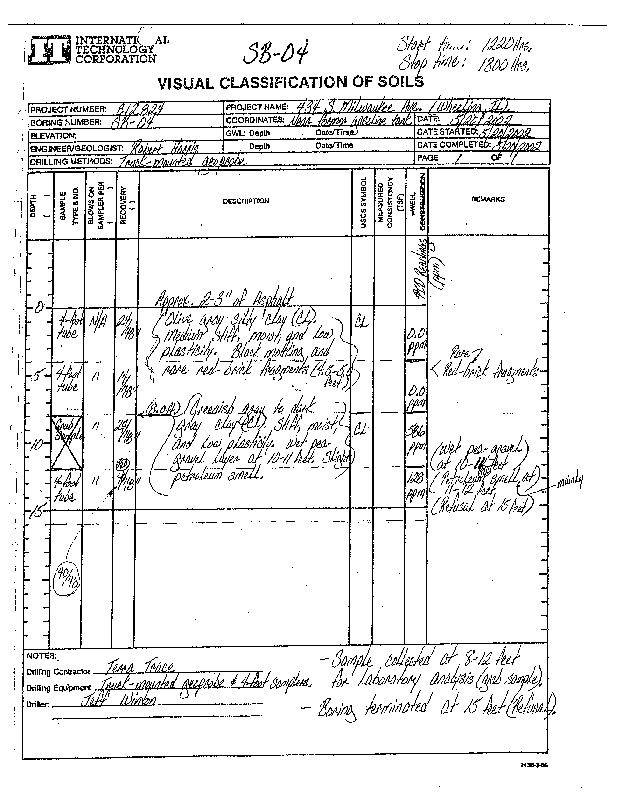 IT INTERNATIONAL TECHNOLOGY CORPORATION
SB-04
Start time: 1220 Hrs.
Stop time: 1300 Hrs.
VISUAL CLASSIFICATION OF SOILS
PROJECT NUMBER: 812824 PROJECT NAME: 434 S Milwaukee Ave. (Wheeling, IL)
BORING NUMBER: SB-04 COORDINATES: Near Former Gasoline Tank DATE: 5/20/2002
ELEVATION: GWL: Depth Date/Time DATE STARTED: 5/20/2002
ENGINEER/GEOLOGIST: Robert Harris Depth Date/Time DATE COMPLETED: 5/20/2002
DRILLING METHODS: Truck-mounted geoprobe PAGE 1 OF 1
DEPTH ( ) SAMPLE TYPE & NO. BLOWS ON SAMPLER PER ( ) RECOVERY ( ) DESCRIPTION USCS SYMBOL MEASURED CONSISTENCY (TSF) WELL CONSTRUCTION REMARKS
Readings (ppm)
0 Approx. 2-3" of Asphalt
4-foot tube N/A 24/48" Olive gray silty clay (CL), CL 0.0 ppm
medium stiff, moist, and low
plasticity. Black mottling and Rare
5 4-foot tube " /48" rare red-brick fragments Red-brick fragments
0.0 ppm
(8.0 ft) Greenish gray to dark
Grab Sample " 24/48" gray clay (CL), stiff, moist, CL ppm
10 and low plasticity. Wet pea- (Wet pea-gravel
gravel layer at 10-11 feet. Slight at 10-11 feet)
4-foot tube " /48" petroleum smell. ppm (Petroleum smell at
-12 feet) mainly
15 (Refusal at 15 feet)
NOTES:
Drilling Contractor Terra Trace
Drilling Equipment Truck-mounted geoprobe & 4-foot samplers
Driller:
- Sample collected at 8-12 feet
for laboratory analysis (grab sample).
- Boring terminated at 15 feet (Refusal).